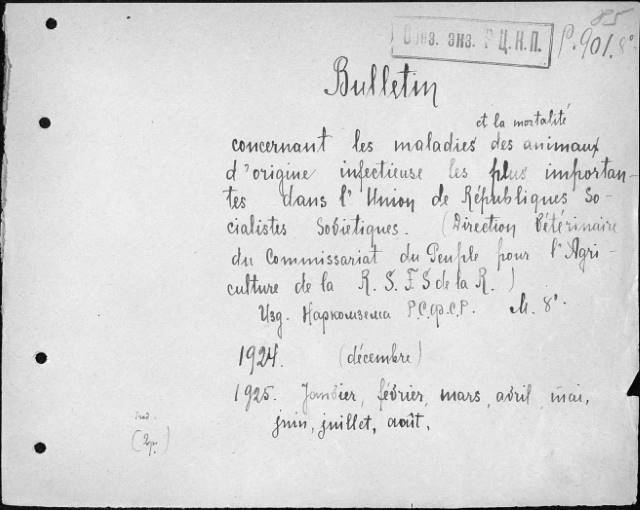 85
Обяз. экз. Р.Ц.К.П.
P.901.8°
Bulletin
et la mortalité
concernant les maladies des animaux
d'origine infectieuse les plus importan-
tes dans l'Union de Républiques So-
cialistes Soviétiques. (Direction Vétérinaire
du Commissariat du Peuple pour l'Agri-
culture de la R. S. F. S de la R.)
Изд. Наркомзема Р.С.Ф.С.Р. М. 8°.
1924. (décembre)
1925. Janvier, février, mars, avril, mai,
juin, juillet, août.
(2р.)